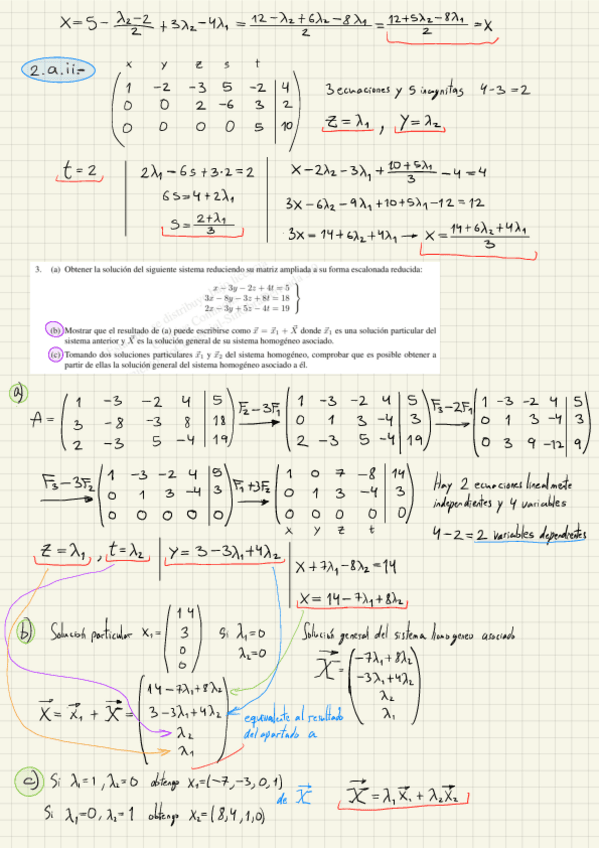 X = 5 - (λ₂-2)/2 + 3λ₂ - 4λ₁ = (12-λ₂+6λ₂-8λ₁)/2 = (12+5λ₂-8λ₁)/2 = X
2.a.ii.-
x y z s t
1 -2 -3 5 -2 | 4
0 0 2 -6 3 | 2
0 0 0 0 5 | 10
3 ecuaciones y 5 incognitas 4-3=2
Z=λ₁ , Y=λ₂
t=2
2λ₁-6s+3·2=2
6s=4+2λ₁
s = (2+λ₁)/3
X-2λ₂-3λ₁+(10+5λ₁)/3-4=4
3X-6λ₂-9λ₁+10+5λ₁-12=12
3X=14+6λ₂+4λ₁ → X=(14+6λ₂+4λ₁)/3
3. (a) Obtener la solución del siguiente sistema reduciendo su matriz ampliada a su forma escalonada reducida:
x − 3y − 2z + 4t = 5
3x − 8y − 3z + 8t = 18
2x − 3y + 5z − 4t = 19
(b) Mostrar que el resultado de (a) puede escribirse como x⃗ = x⃗₁ + X⃗ donde x⃗₁ es una solución particular del
sistema anterior y X⃗ es la solución general de su sistema homogéneo asociado.
(c) Tomando dos soluciones particulares x⃗₁ y x⃗₂ del sistema homogéneo, comprobar que es posible obtener a
partir de ellas la solución general del sistema homogéneo asociado a él.
a)
A =
1 -3 -2 4 | 5
3 -8 -3 8 | 18
2 -3 5 -4 | 19
F₂-3F₁
1 -3 -2 4 | 5
0 1 3 -4 | 3
2 -3 5 -4 | 19
F₃-2F₁
1 -3 -2 4 | 5
0 1 3 -4 | 3
0 3 9 -12 | 9
F₃-3F₂
1 -3 -2 4 | 5
0 1 3 -4 | 3
0 0 0 0 | 0
F₁+3F₂
1 0 7 -8 | 14
0 1 3 -4 | 3
0 0 0 0 | 0
x y z t
Hay 2 ecuaciones linealmete
independientes y 4 variables
4-2=2 variables dependientes
Z=λ₁ , t=λ₂
Y=3-3λ₁+4λ₂
X+7λ₁-8λ₂=14
X=14-7λ₁+8λ₂
b) Solución particular X₁=
14
3
0
0
Si λ₁=0
λ₂=0
Solución general del sistema homogeneo asociado
X⃗ =
-7λ₁+8λ₂
-3λ₁+4λ₂
λ₂
λ₁
X⃗ = X⃗₁ + X⃗ =
14-7λ₁+8λ₂
3-3λ₁+4λ₂
λ₂
λ₁
equivalente al resultado
del apartado a
c) Si λ₁=1, λ₂=0 obtengo X₁=(-7,-3,0,1)
Si λ₁=0, λ₂=1 obtengo X₂=(8,4,1,0)
de X⃗
X⃗=λ₁X⃗₁+λ₂X⃗₂